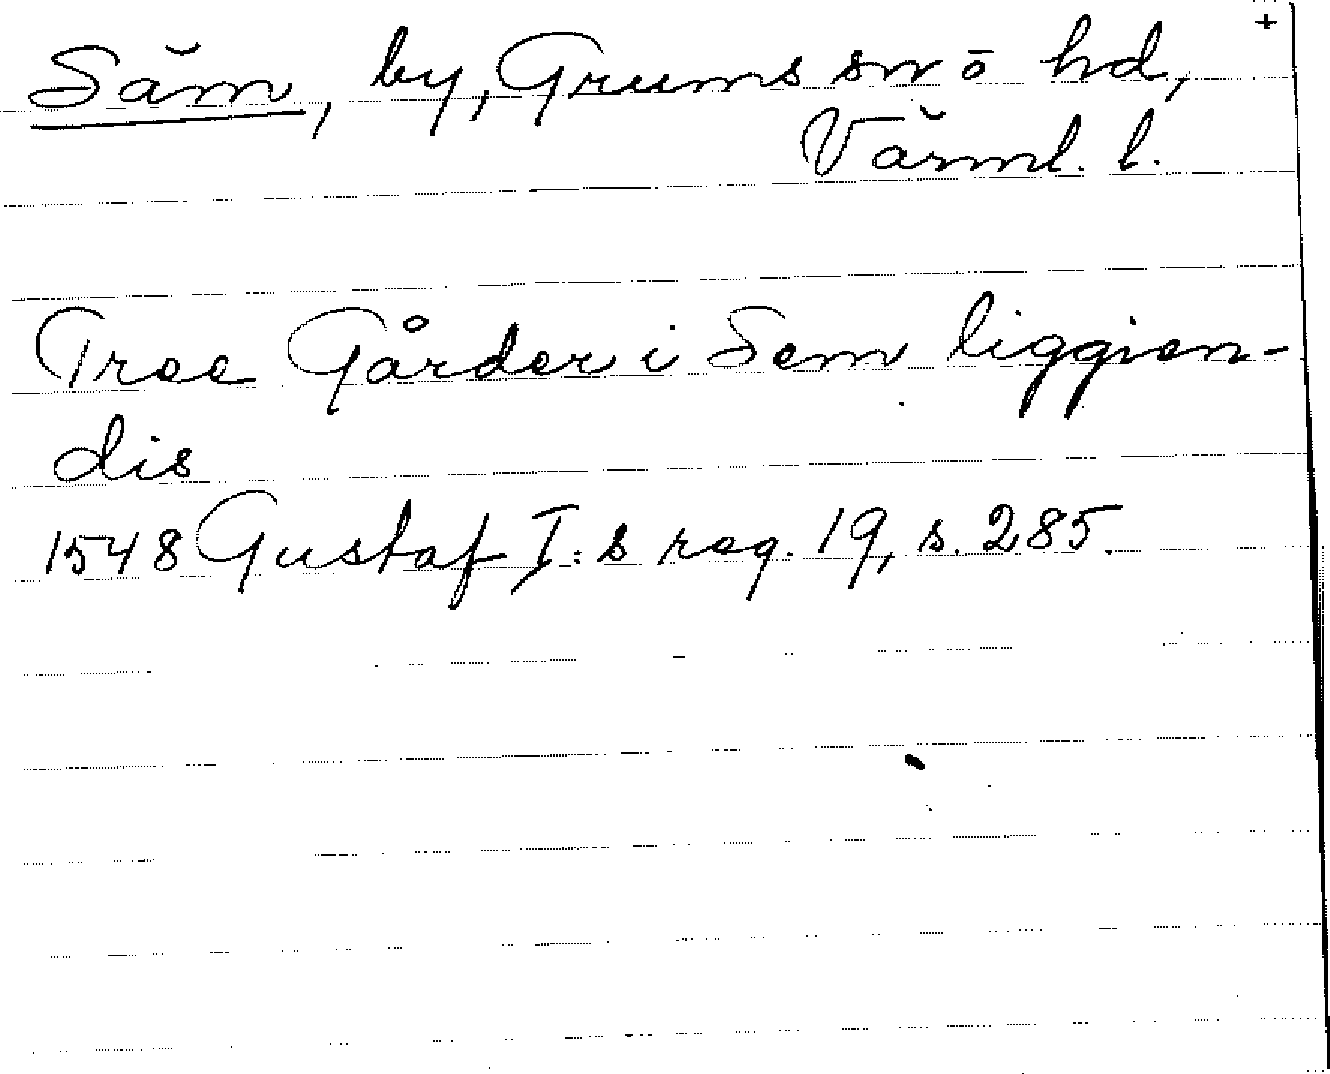 +
Säm, by, Grums sn o hd,
Värml. l.
Tree Gårder i Sem liggien-
dis
1548 Gustaf I:s reg. 19, s. 285.